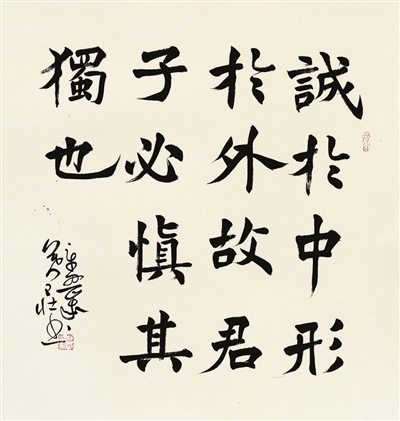 誠於中形
於外故君
子必慎其
獨也